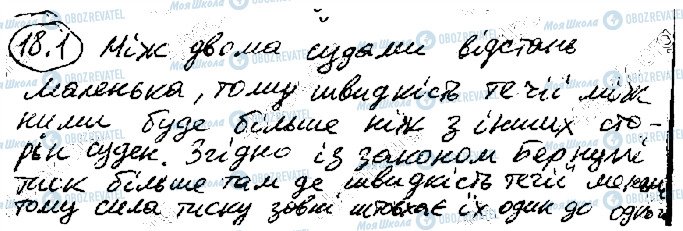 18.1 Між двома судами відстань
маленька, тому швидкість течії між
ними буде більше ніж з інших сто-
рін суден. Згідно із законом Бернуллі
тиск більше там де швидкість течії менш
тому сила тиску зовні штовхає їх один до одного